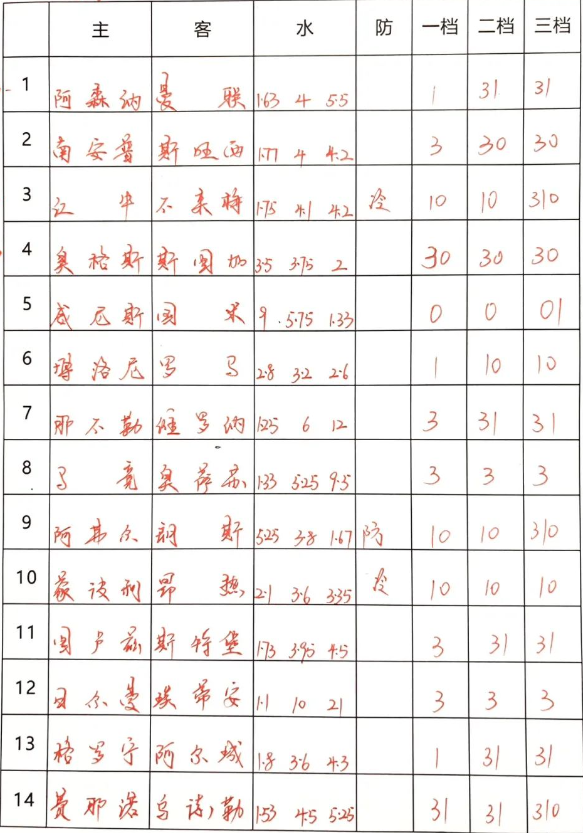 主 客 水 防 一档 二档 三档
1 阿森纳 曼联 1.63 4 5.5 1 31 31
2 南安普 斯旺西 1.77 4 4.2 3 30 30
3 红牛 不来梅 1.75 4.1 4.2 冷 10 10 310
4 奥格斯 斯图加 3.5 3.75 2 30 30 30
5 威尼斯 国米 9 5.75 1.33 0 0 01
6 博洛尼 罗马 2.8 3.2 2.6 1 10 10
7 那不勒 维罗纳 1.25 6 12 3 31 31
8 马竞 奥萨苏 1.33 5.25 9.5 3 3 3
9 阿弗尔 朗斯 5.25 3.8 1.67 防 10 10 310
10 蒙彼利 昂热 2.1 3.6 3.35 冷 10 10 10
11 图卢兹 斯特堡 1.73 3.95 4.5 3 31 31
12 日尔曼 埃蒂安 1.1 10 21 3 3 3
13 格罗宁 阿尔城 1.8 3.6 4.3 1 31 31
14 费耶诺 乌德勒 1.53 4.5 5.25 31 31 310